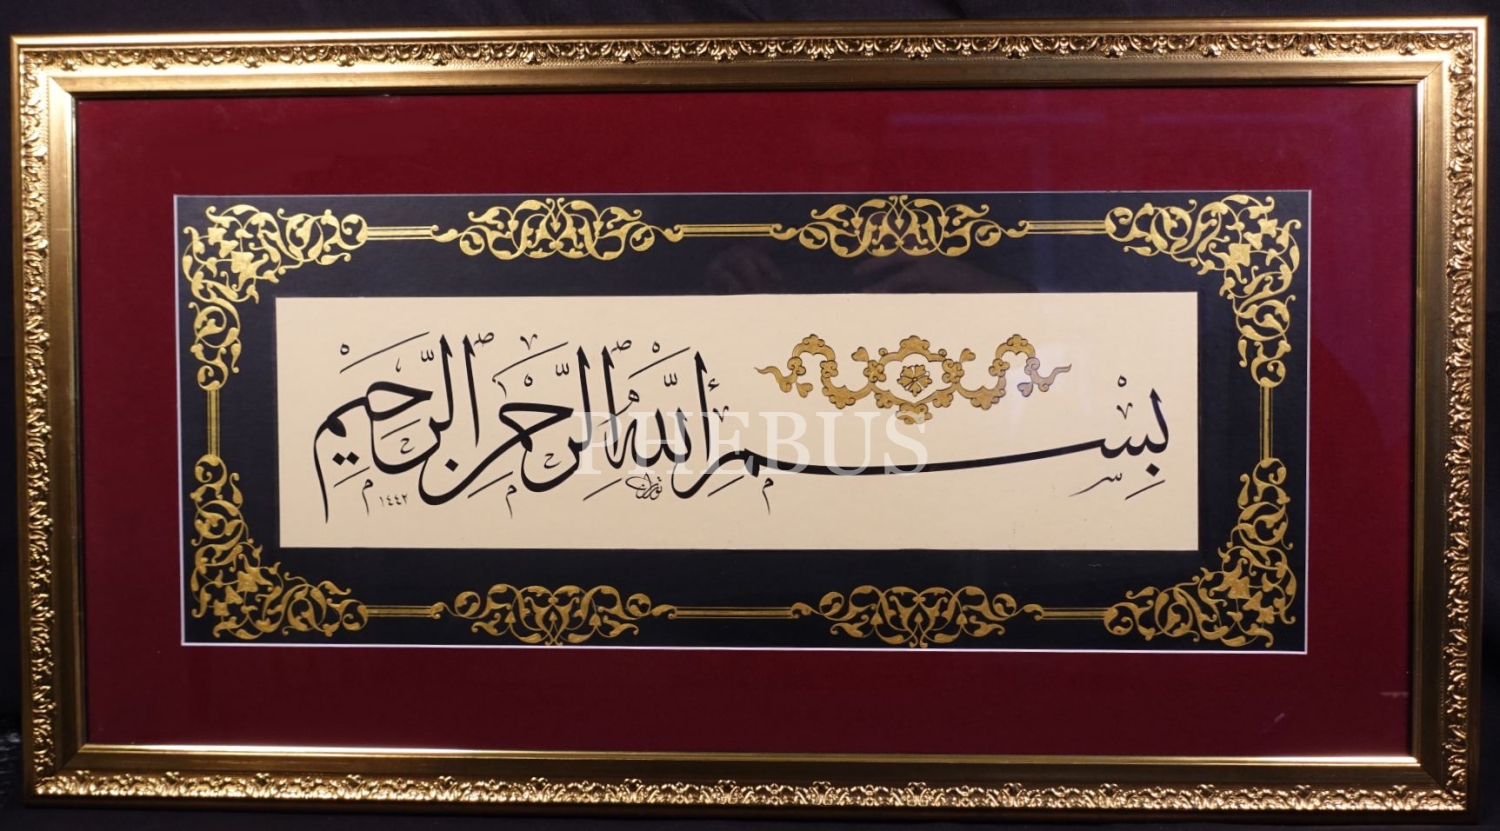 بِسْمِ اللّٰهِ الرَّحْمٰنِ الرَّحِيْمِ
١٤٤٢
PHEBUS